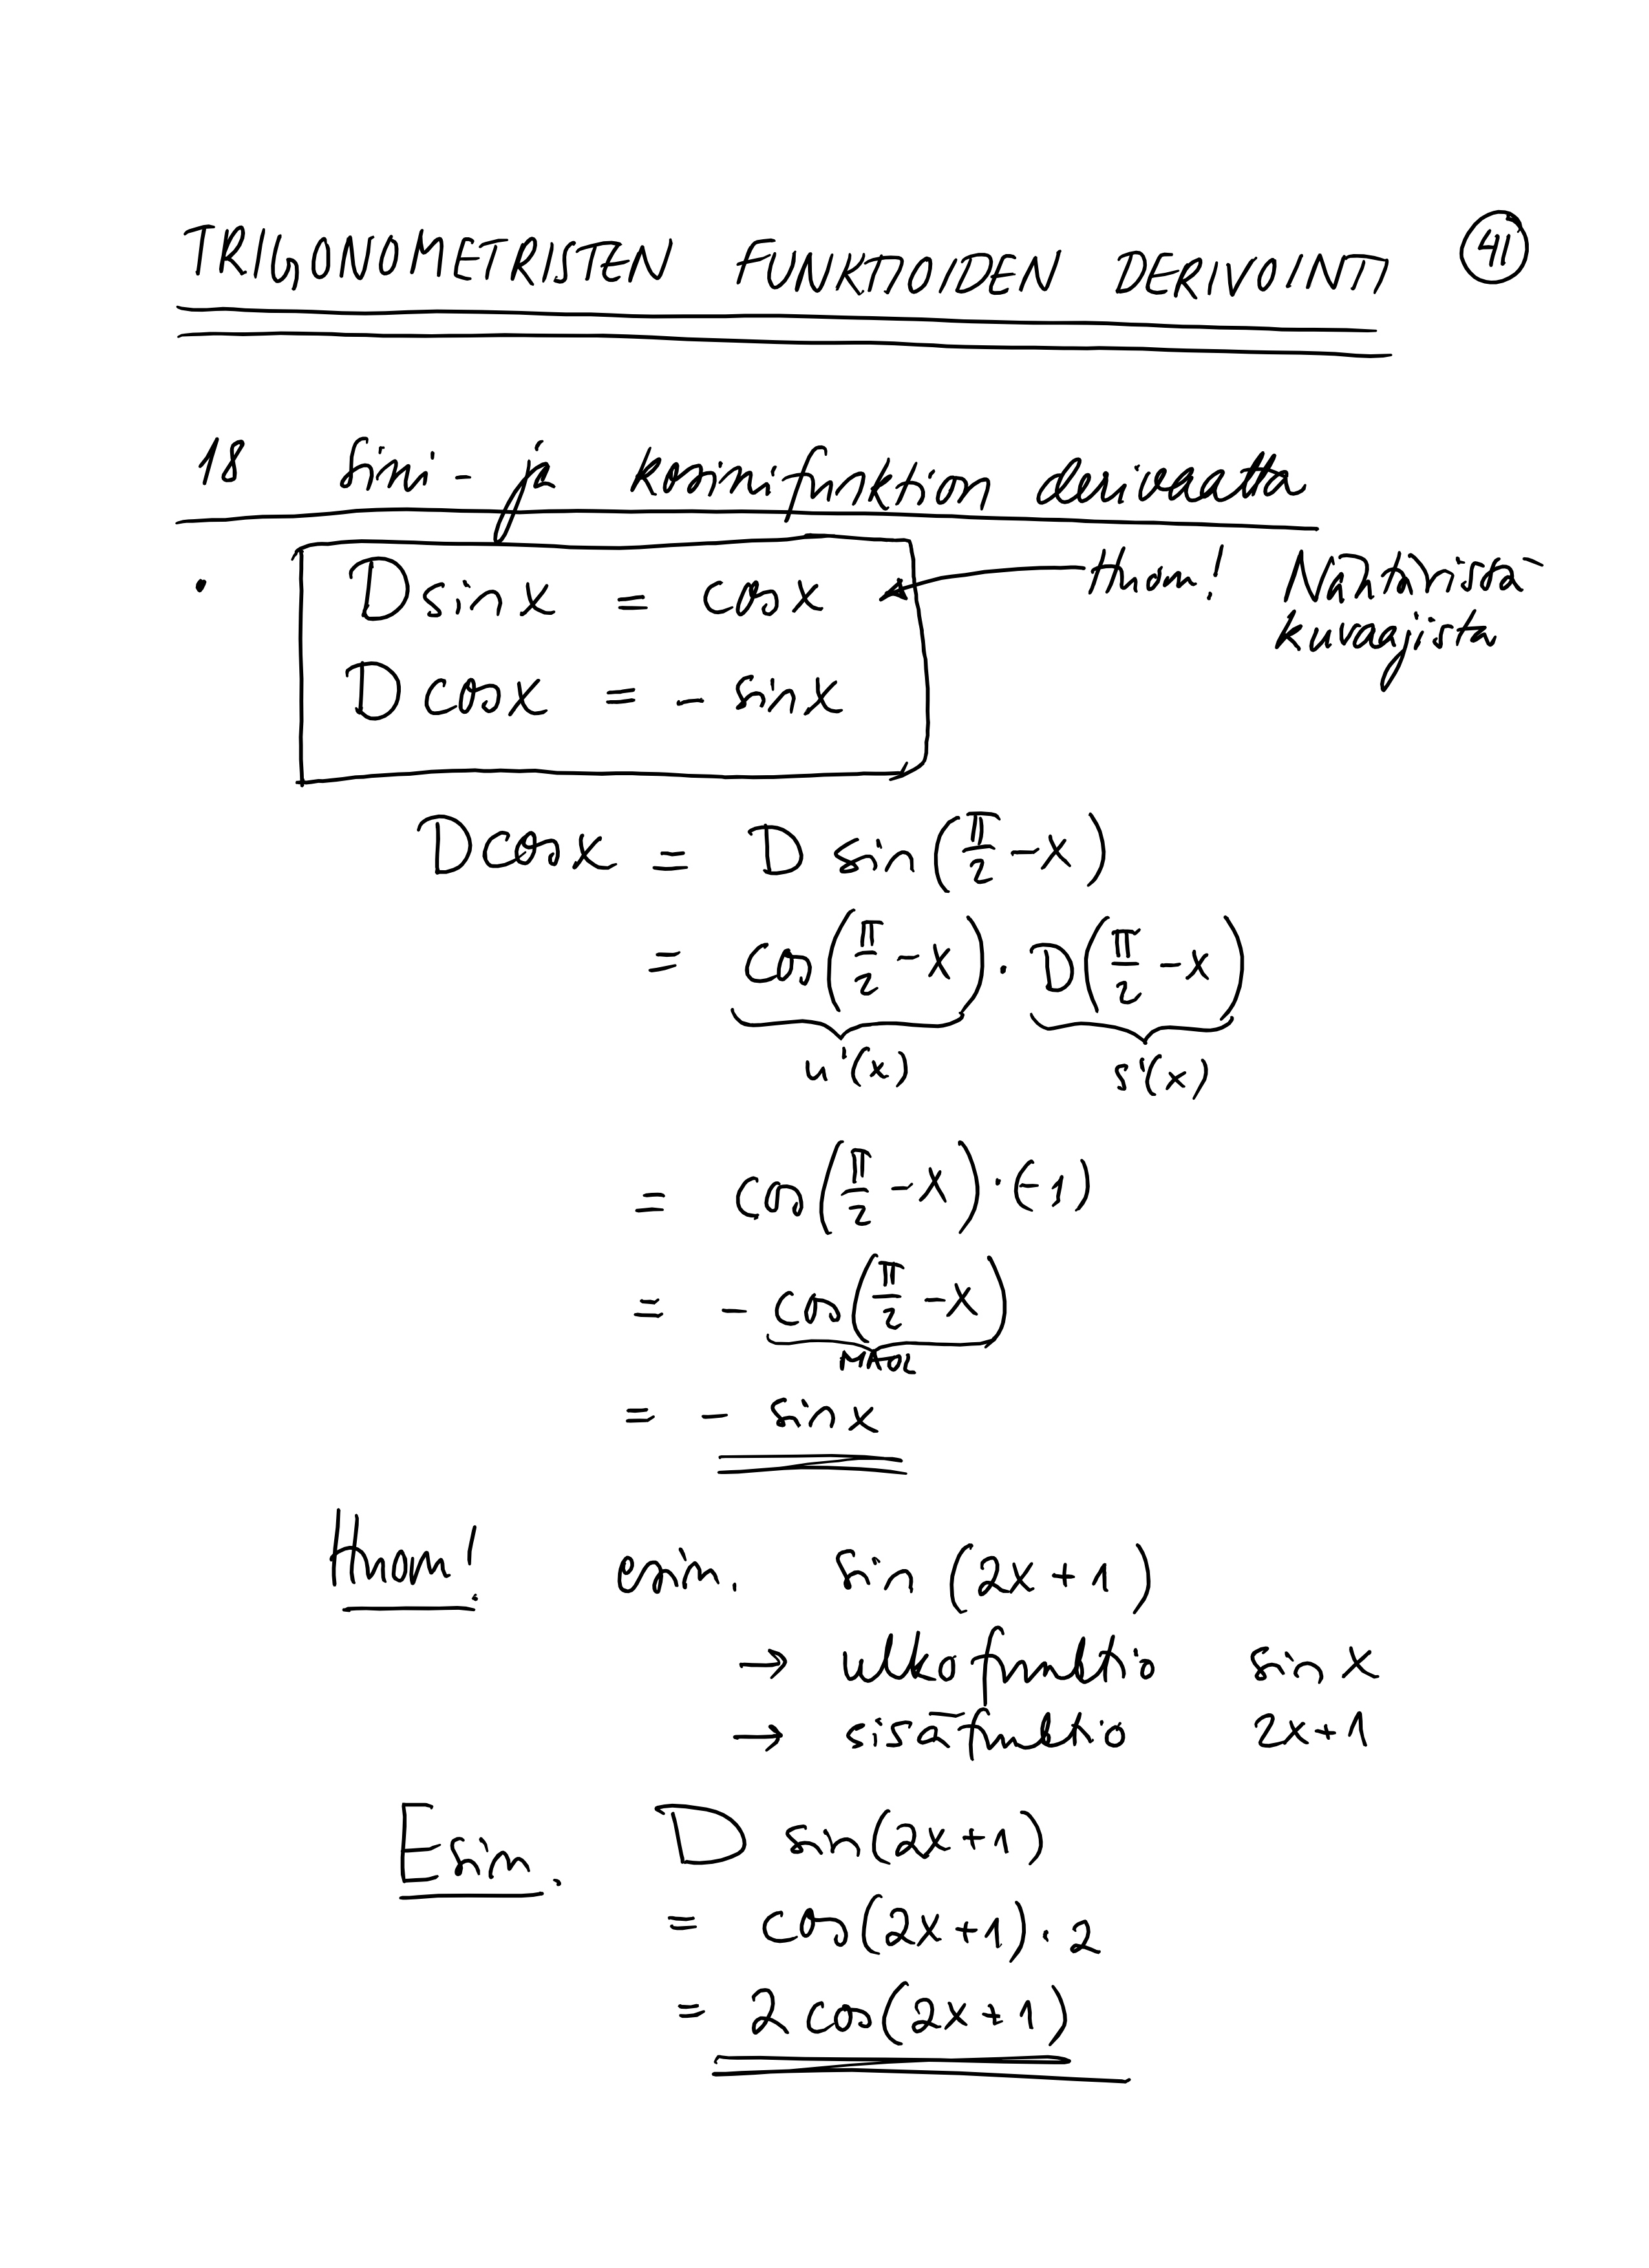 TRIGONOMETRISTEN FUNKTIOIDEN DERIVOINTI 41
18 Sini- ja kosinifunktion derivaatta
• D sin x = cos x ← Huom! Nähtävissä
kuvaajista
D cos x = - sin x
D cos x = D sin(π/2 - x)
= cos(π/2 - x) · D(π/2 - x)
u'(x) s'(x)
= cos(π/2 - x) · (-1)
= - cos(π/2 - x)
MAOL
= - sin x
Huom! esim. sin(2x+1)
→ ulkofunktio sin x
→ sisäfunktio 2x+1
Esim. D sin(2x+1)
= cos(2x+1) · 2
= 2 cos(2x+1)